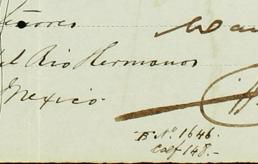 Señores
del Rio Hermanos
Mexico.
B Nº. 1646.
Colf 148.-